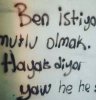 Ben istiyo
mutlu olmak.
Hayat diyor
yaw he he: